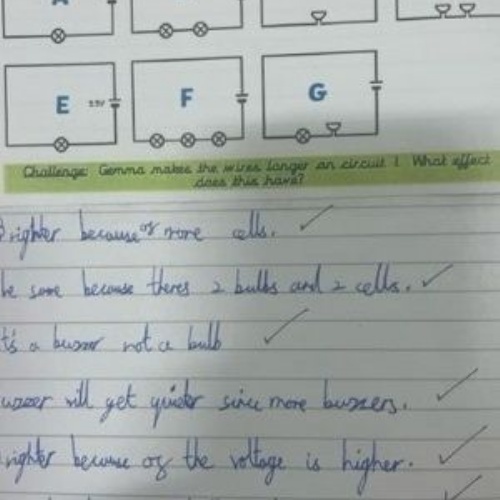 E
3.5V
F
G
Challenge: Gemma makes the wires longer on circuit 1. What effect
does this have?
Brighter because of more cells.
he same because theres 2 bulbs and 2 cells.
t's a buzzer not a bulb
uzzer will get quieter since more buzzers.
righter because of the voltage is higher.